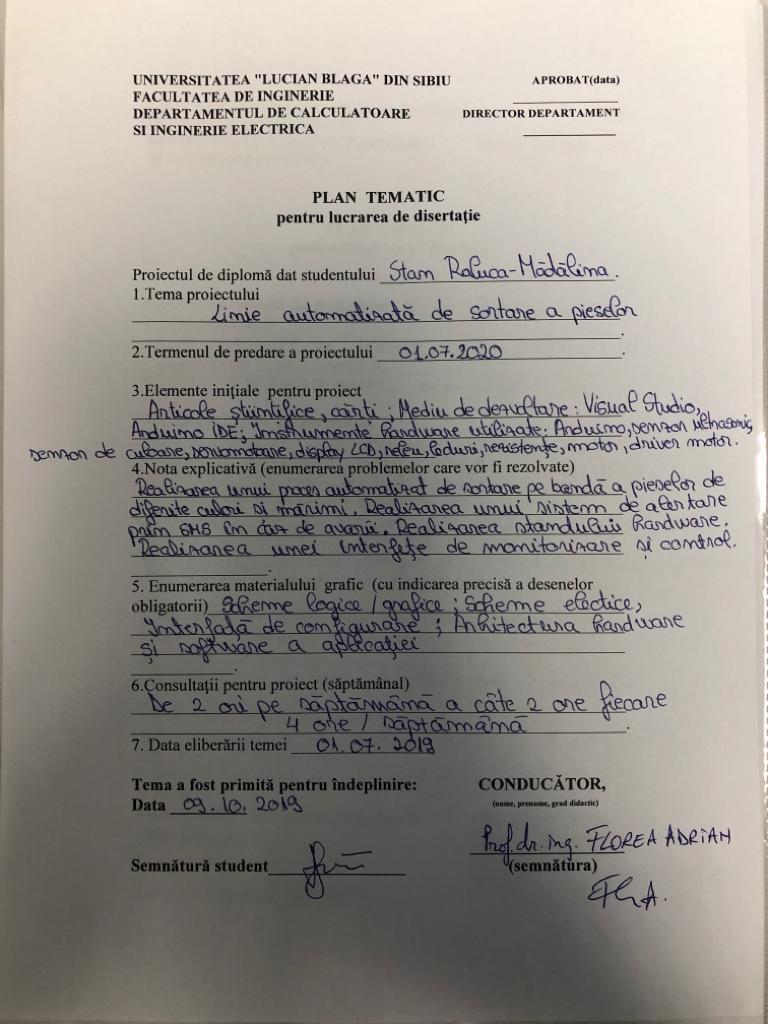 UNIVERSITATEA "LUCIAN BLAGA" DIN SIBIU
APROBAT(data)
FACULTATEA DE INGINERIE
DEPARTAMENTUL DE CALCULATOARE
DIRECTOR DEPARTAMENT
SI INGINERIE ELECTRICA
PLAN TEMATIC
pentru lucrarea de disertație
Proiectul de diplomă dat studentului Stam Raluca-Mădălina.
1.Tema proiectului
Linie automatizată de sortare a pieselor
2.Termenul de predare a proiectului 01.07.2020.
3.Elemente inițiale pentru proiect
Articole științifice, cărți; Mediu de dezvoltare: Visual Studio,
Arduino IDE; Instrumente hardware utilizate: Arduino, senzor ultrasonic,
senzor de culoare, servomotoare, display LCD, releu, leduri, rezistențe, motor, driver motor.
4.Nota explicativă (enumerarea problemelor care vor fi rezolvate)
Realizarea unui proces automatizat de sortare pe bandă a pieselor de
diferite culori si mărimi. Realizarea unui sistem de alertare
prin SMS în caz de avarii. Realizarea standului hardware.
Realizarea unei interfețe de monitorizare și control.
5. Enumerarea materialului grafic (cu indicarea precisă a desenelor
obligatorii) Scheme logice / grafice; Scheme electice,
Interfață de configurare; Arhitectura hardware
și software a aplicației
6.Consultații pentru proiect (săptămânal)
De 2 ori pe săptămână a câte 2 ore fiecare
4 ore / săptămână
7. Data eliberării temei 01.07.2019
Tema a fost primită pentru îndeplinire:
CONDUCĂTOR,
Data 09.10.2019
(nume, prenume, grad didactic)
Prof. dr. ing. FLOREA ADRIAN
Semnătură student
(semnătura)